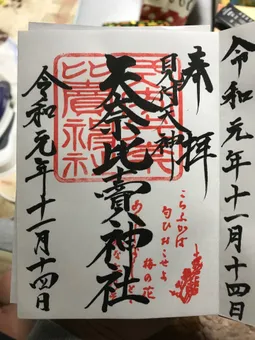 令和元年十一月十四日
奉拝
見付天神
矢奈比賣神社
令和元年十一月十四日
こちふかば
匂ひおこせよ
梅の花